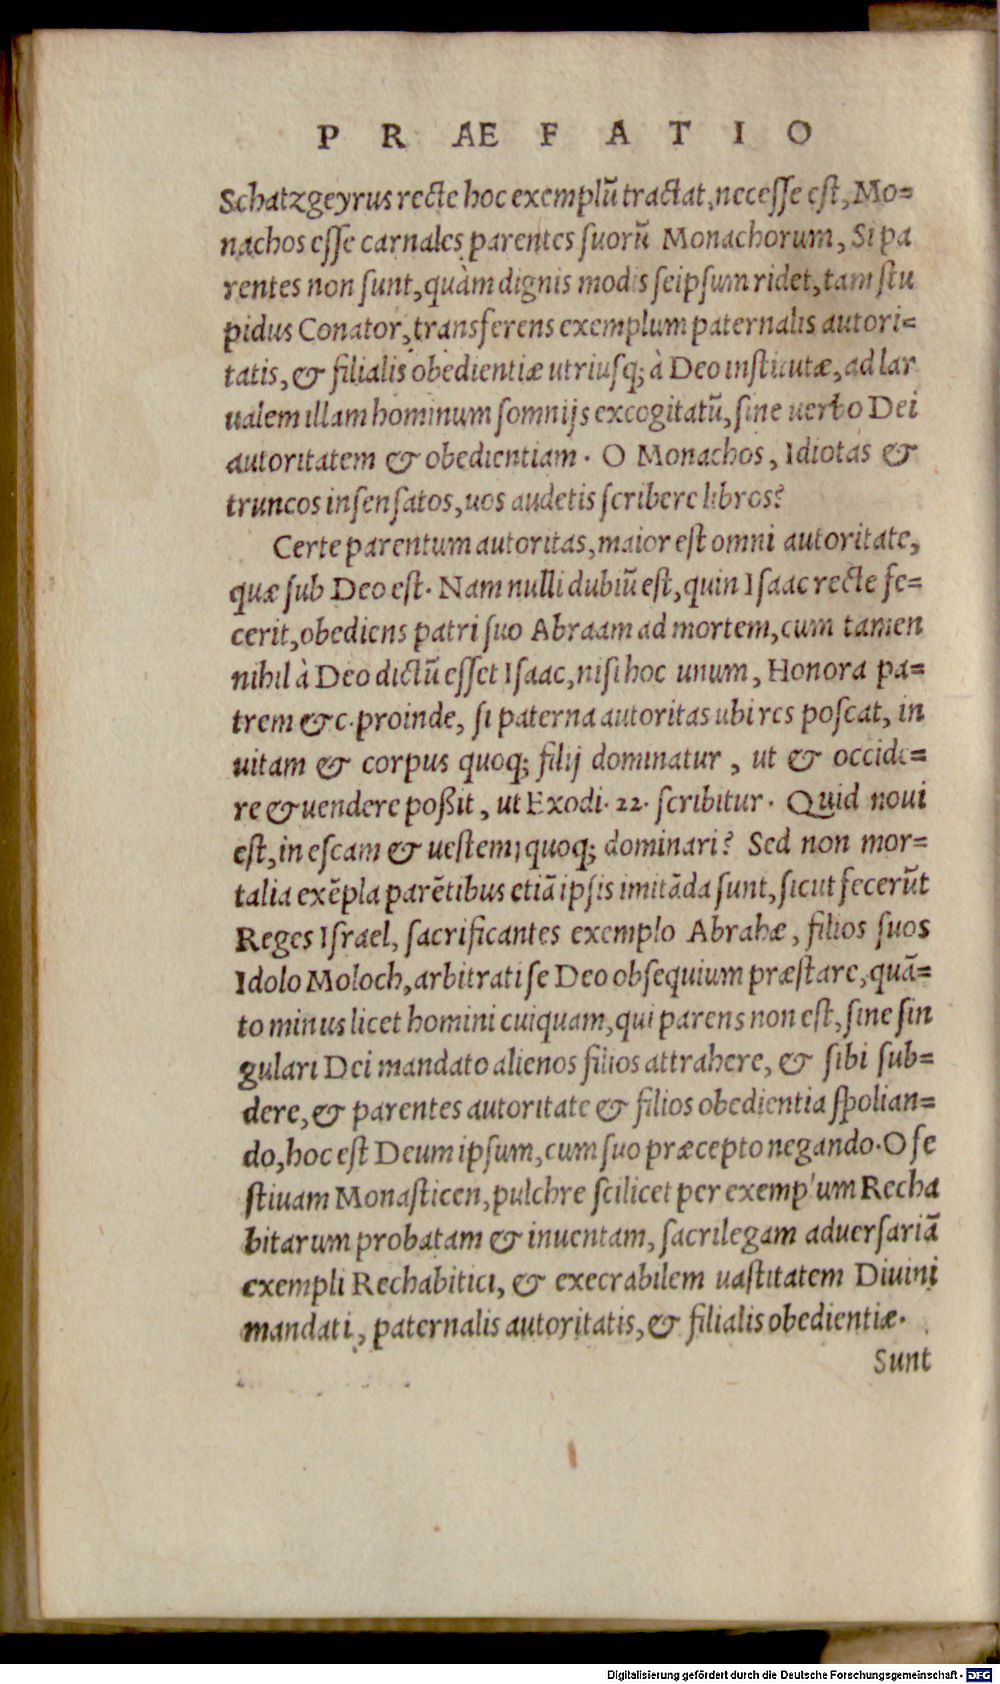 P R AE F A T I O
Schatzgeyrus recte hoc exemplũ tractat, necesse est, Mo=
nachos esse carnales parentes suorũ Monachorum, Si pa
rentes non sunt, quàm dignis modis seipsum ridet, tam stu
pidus Conator, transferens exemplum paternalis autori=
tatis, & filialis obedientiæ utriusq; à Deo institutæ, ad lar
ualem illam hominum somnijs excogitatũ, sine uerbo Dei
autoritatem & obedientiam. O Monachos, Idiotas &
truncos insensatos, uos audetis scribere libros?
Certe parentum autoritas, maior est omni autoritate,
quæ sub Deo est. Nam nulli dubiũ est, quin Isaac recte fe=
cerit, obediens patri suo Abraam ad mortem, cum tamen
nihil à Deo dictũ esset Isaac, nisi hoc unum, Honora pa=
trem &c. proinde, si paterna autoritas ubi res poscat, in
uitam & corpus quoq; filij dominatur, ut & occide=
re & uendere poßit, ut Exodi. 22. scribitur. Quid noui
est, in escam & uestem quoq; dominari? Sed non mor=
talia exẽpla parẽtibus etiã ipsis imitãda sunt, sicut fecerũt
Reges Israel, sacrificantes exemplo Abrahæ, filios suos
Idolo Moloch, arbitrati se Deo obsequium præstare, quã=
to minus licet homini cuiquam, qui parens non est, sine sin
gulari Dei mandato alienos filios attrahere, & sibi sub=
dere, & parentes autoritate & filios obedientia spolian=
do, hoc est Deum ipsum, cum suo præcepto negando. O fe
stiuam Monasticen, pulchre scilicet per exemplum Recha
bitarum probatam & inuentam, sacrilegam aduersariã
exempli Rechabitici, & execrabilem uastitatem Diuini
mandati, paternalis autoritatis, & filialis obedientiæ.
Sunt
Digitalisierung gefördert durch die Deutsche Forschungsgemeinschaft - DFG